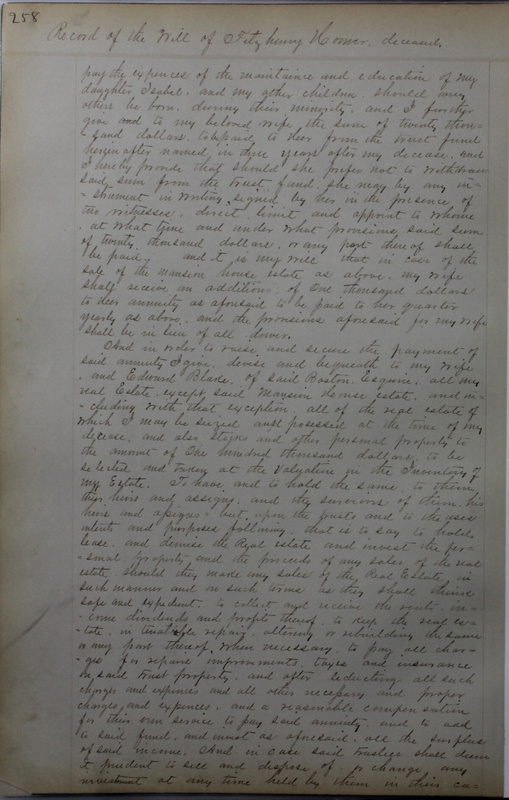 258
Record of the Will of Fitzhenry Homer, deceased,
pay the expences of the maintaince and education of my
daughter Isabel. and my other children. should any
others be born. during their minority. and I further
give and to my beloved wife the sum of twenty thou=
=sand dollars. to be paid to her from the trust fund
hereinafter named in three years after my decease. and
I hereby provide that should she prefer not to withdraw
said sum from the trust fund. she may by any in=
=strument in writing signed by her in the presence of
two witnesses. direct. limit and appoint to whome
. at what time and under what provisions said sum
of twenty thousand dollars. or any part thereof shall
be paid, and it is my will that in case of the
sale of the mansion house estate as above. my wife
shall receive an addition. of One thousand dollars
to her annuity as aforesaid to be paid to her quarter
yearly as above. and the provisions aforesaid for my wife
shall be in lieu of all dower.
And in order to raise and secure the payment of
said annuity I give, devise and bequeath to my wife
. and Edward Blake. of said Boston, Esquire. all my
real Estate. except said Mansion House estate. and in=
=cluding with that exception. all of the real estate of
which I may be seized and posessed at the time of my
decease. and also stocks and other personal property to
the amount of One hundred thousand dollars, to be
selected and taken at the Valuation in the Inventory of
my Estate. To have, and to hold the same. to them,
their heirs and assigns, and the survivors of them. his
heirs and assigns. but, upon the trusts and to the uses
intents and purposes following. that is to say to hold,
lease. and demise the Real estate and invest the per=
=sonal property. and the proceeds of any sales of the real
estate. should they make any sales of the Real Estate, in
such manner and on such terms as they shall think
safe and expedient. to collect and receive the rents. in=
=come dividends and profits thereof. to keep the real es=
=tate. in tenatable repair. altering or rebuilding the same
or any part thereof, when necessary. to pay all char=
=ges for repairs improvements, taxes and insurance
on said trust property. and after deducting all such
charges and expences and all other necessary and proper
charges and expences. and a reasonable compensation
for their own service to pay said annuity. and to add
to said fund. and invest as aforesaid. all the surplus
of said income. And in case said trustees shall deem
it prudent to sell and dispose of. or change any
investment at any time held by them in their ca=